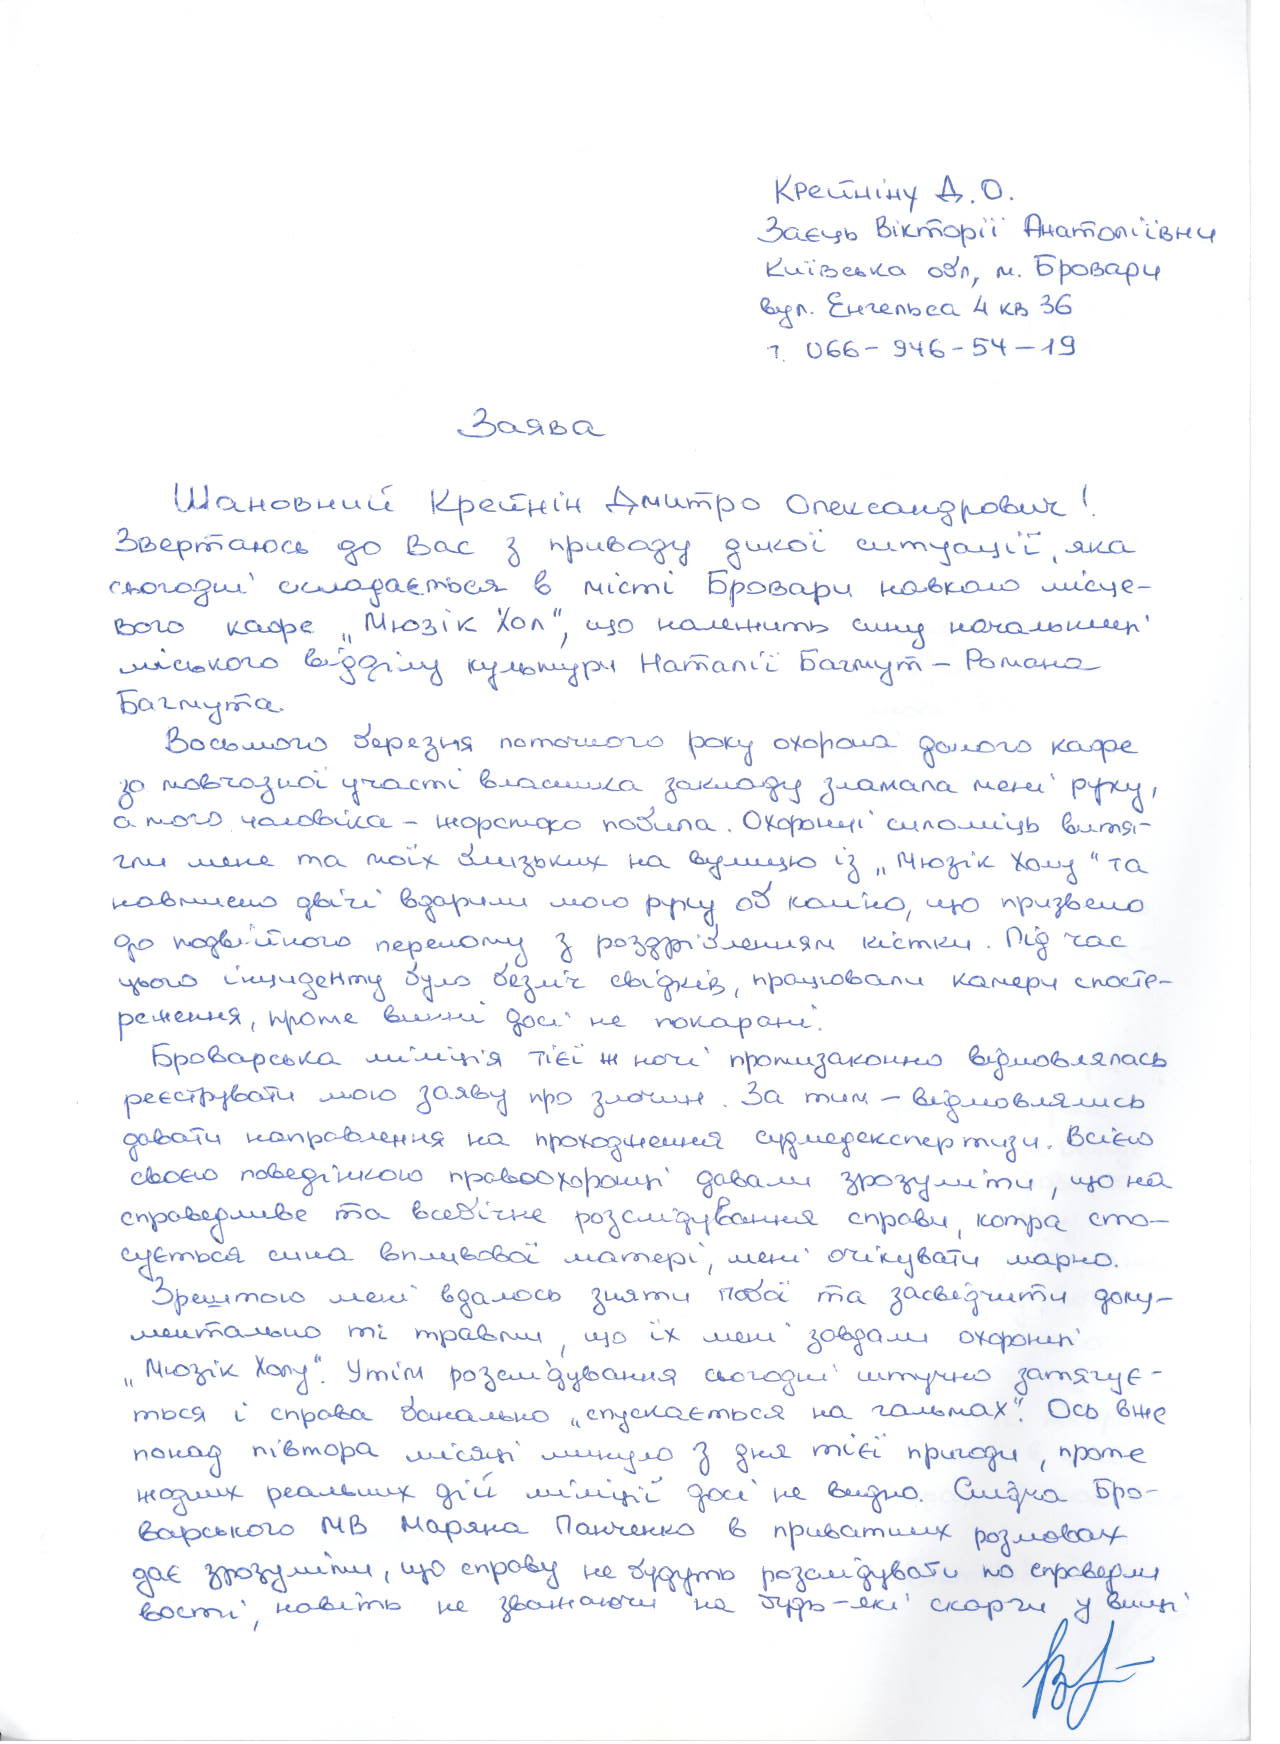 Крейніну Д.О.
Заєць Вікторії Анатоліївни
Київська обл, м. Бровари
вул. Енгельса 4 кв 36
т. 066-946-54-19
Заява
Шановний Крейнін Дмитро Олександрович!
Звертаюсь до Вас з приводу дикої ситуації, яка
сьогодні складається в місті Бровари навколо місце-
вого кафе „Мюзік Хол", що належить сину начальниці
міського відділу культури Наталії Багмут – Романа
Багмута.
Восьмого березня поточного року охорона даного кафе
за мовчазної участі власника закладу зламала мені руку,
а мого чоловіка – жорстоко побила. Охоронці силоміць витя-
гли мене та моїх близьких на вулицю із „Мюзік Холу" та
навмисно двічі вдарили мою руку об коліно, що призвело
до подвійного перелому з роздрібленням кістки. Під час
цього інциденту було безліч свідків, працювали камери спосте-
реження, проте винні досі не покарані.
Броварська міліція тієї ж ночі протизаконно відмовлялась
реєструвати мою заяву про злочин. За тим – відмовлялись
давати направлення на проходження судмедекспертизи. Всією
своєю поведінкою правоохоронці давали зрозуміти, що на
справедливе та всебічне розслідування справи, котра сто-
сується сина впливової матері, мені очікувати марно.
Зрештою мені вдалось зняти побої та засвідчити доку-
ментально ті травми, що їх мені завдали охоронці
„Мюзік Холу". Утім розслідування сьогодні штучно затягує-
ться і справа банально „спускається на гальмах". Ось вже
понад півтора місяці минуло з дня тієї пригоди, проте
жодних реальних дій міліції досі не видно. Слідча Бро-
варського МВ Маряна Панченко в приватних розмовах
дає зрозуміти, що справу не будуть розслідувати по справедли
вості, навіть не зважаючи на будь-які скарги у вищі